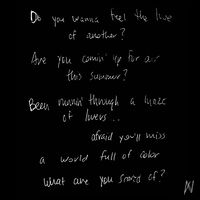 Do you wanna feel the love
of another?
Are you comin' up for air
this summer?
Been runnin' through a maze
of lovers..
afraid you'll miss
a world full of color
what are you scared of?